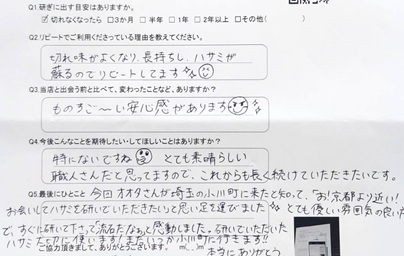 Q1.研ぎに出す目安はありますか。
☑切れなくなったら □3か月 □半年 □1年 □2年以上 □その他( )
Q2.リピートでご利用くださっている理由を教えてください。
切れ味がよくなり、長持ちし、ハサミが
蘇るのでリピートしてます
Q3.当店と出会う前と比べて、変わったことなど、ありますか?
ものすご〜い安心感があります
Q4.今後こんなことを期待したい・してほしいことはありますか?
特にないですね とても素晴らしい
職人さんだと思ってますので、これからも長く続けていただきたいです。
Q5.最後にひとこと 今日オオタさんが埼玉の小川町に来たと知って、「お!京都より近い!
お会いしてハサミを研いでいただきたいっと思い足を運びました とても優しい雰囲気の良い
で、すぐに研いで下さって流石だなぁと感動しました。研いでいただいた
ハサミ大切に使います!またいつか小川町に行きます!!
ご協力頂きまして、ありがとうございます。 m(._.)m 本当にありがとう